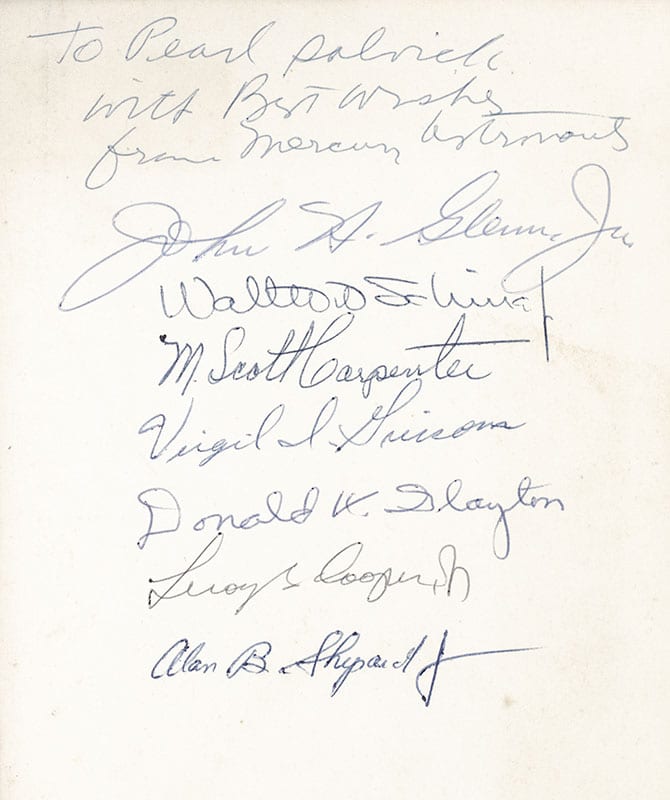 To Pearl
with Best Wishes
from Mercury Astronauts
John H. Glenn, Jr.
Walter M Schirra Jr
M. Scott Carpenter
Virgil I. Grissom
Donald K. Slayton
Leroy G Cooper, Jr
Alan B. Shepard Jr